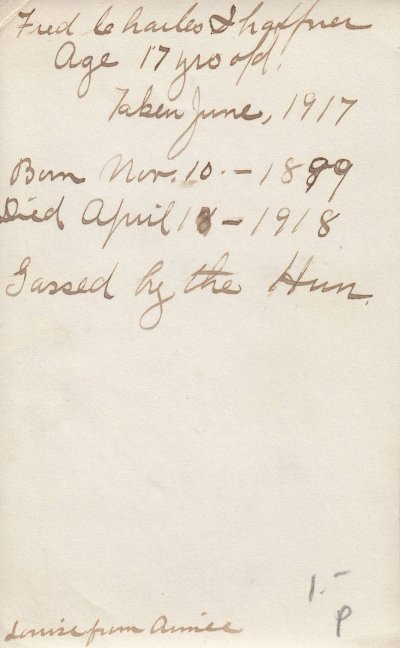 Fred Charles Shaffner
Age 17 yrs old.
Taken June, 1917
Born Nov. 10. - 1899
Died April 18 - 1918
Gassed by the Hun.
1.-
P
Louise from Aimee